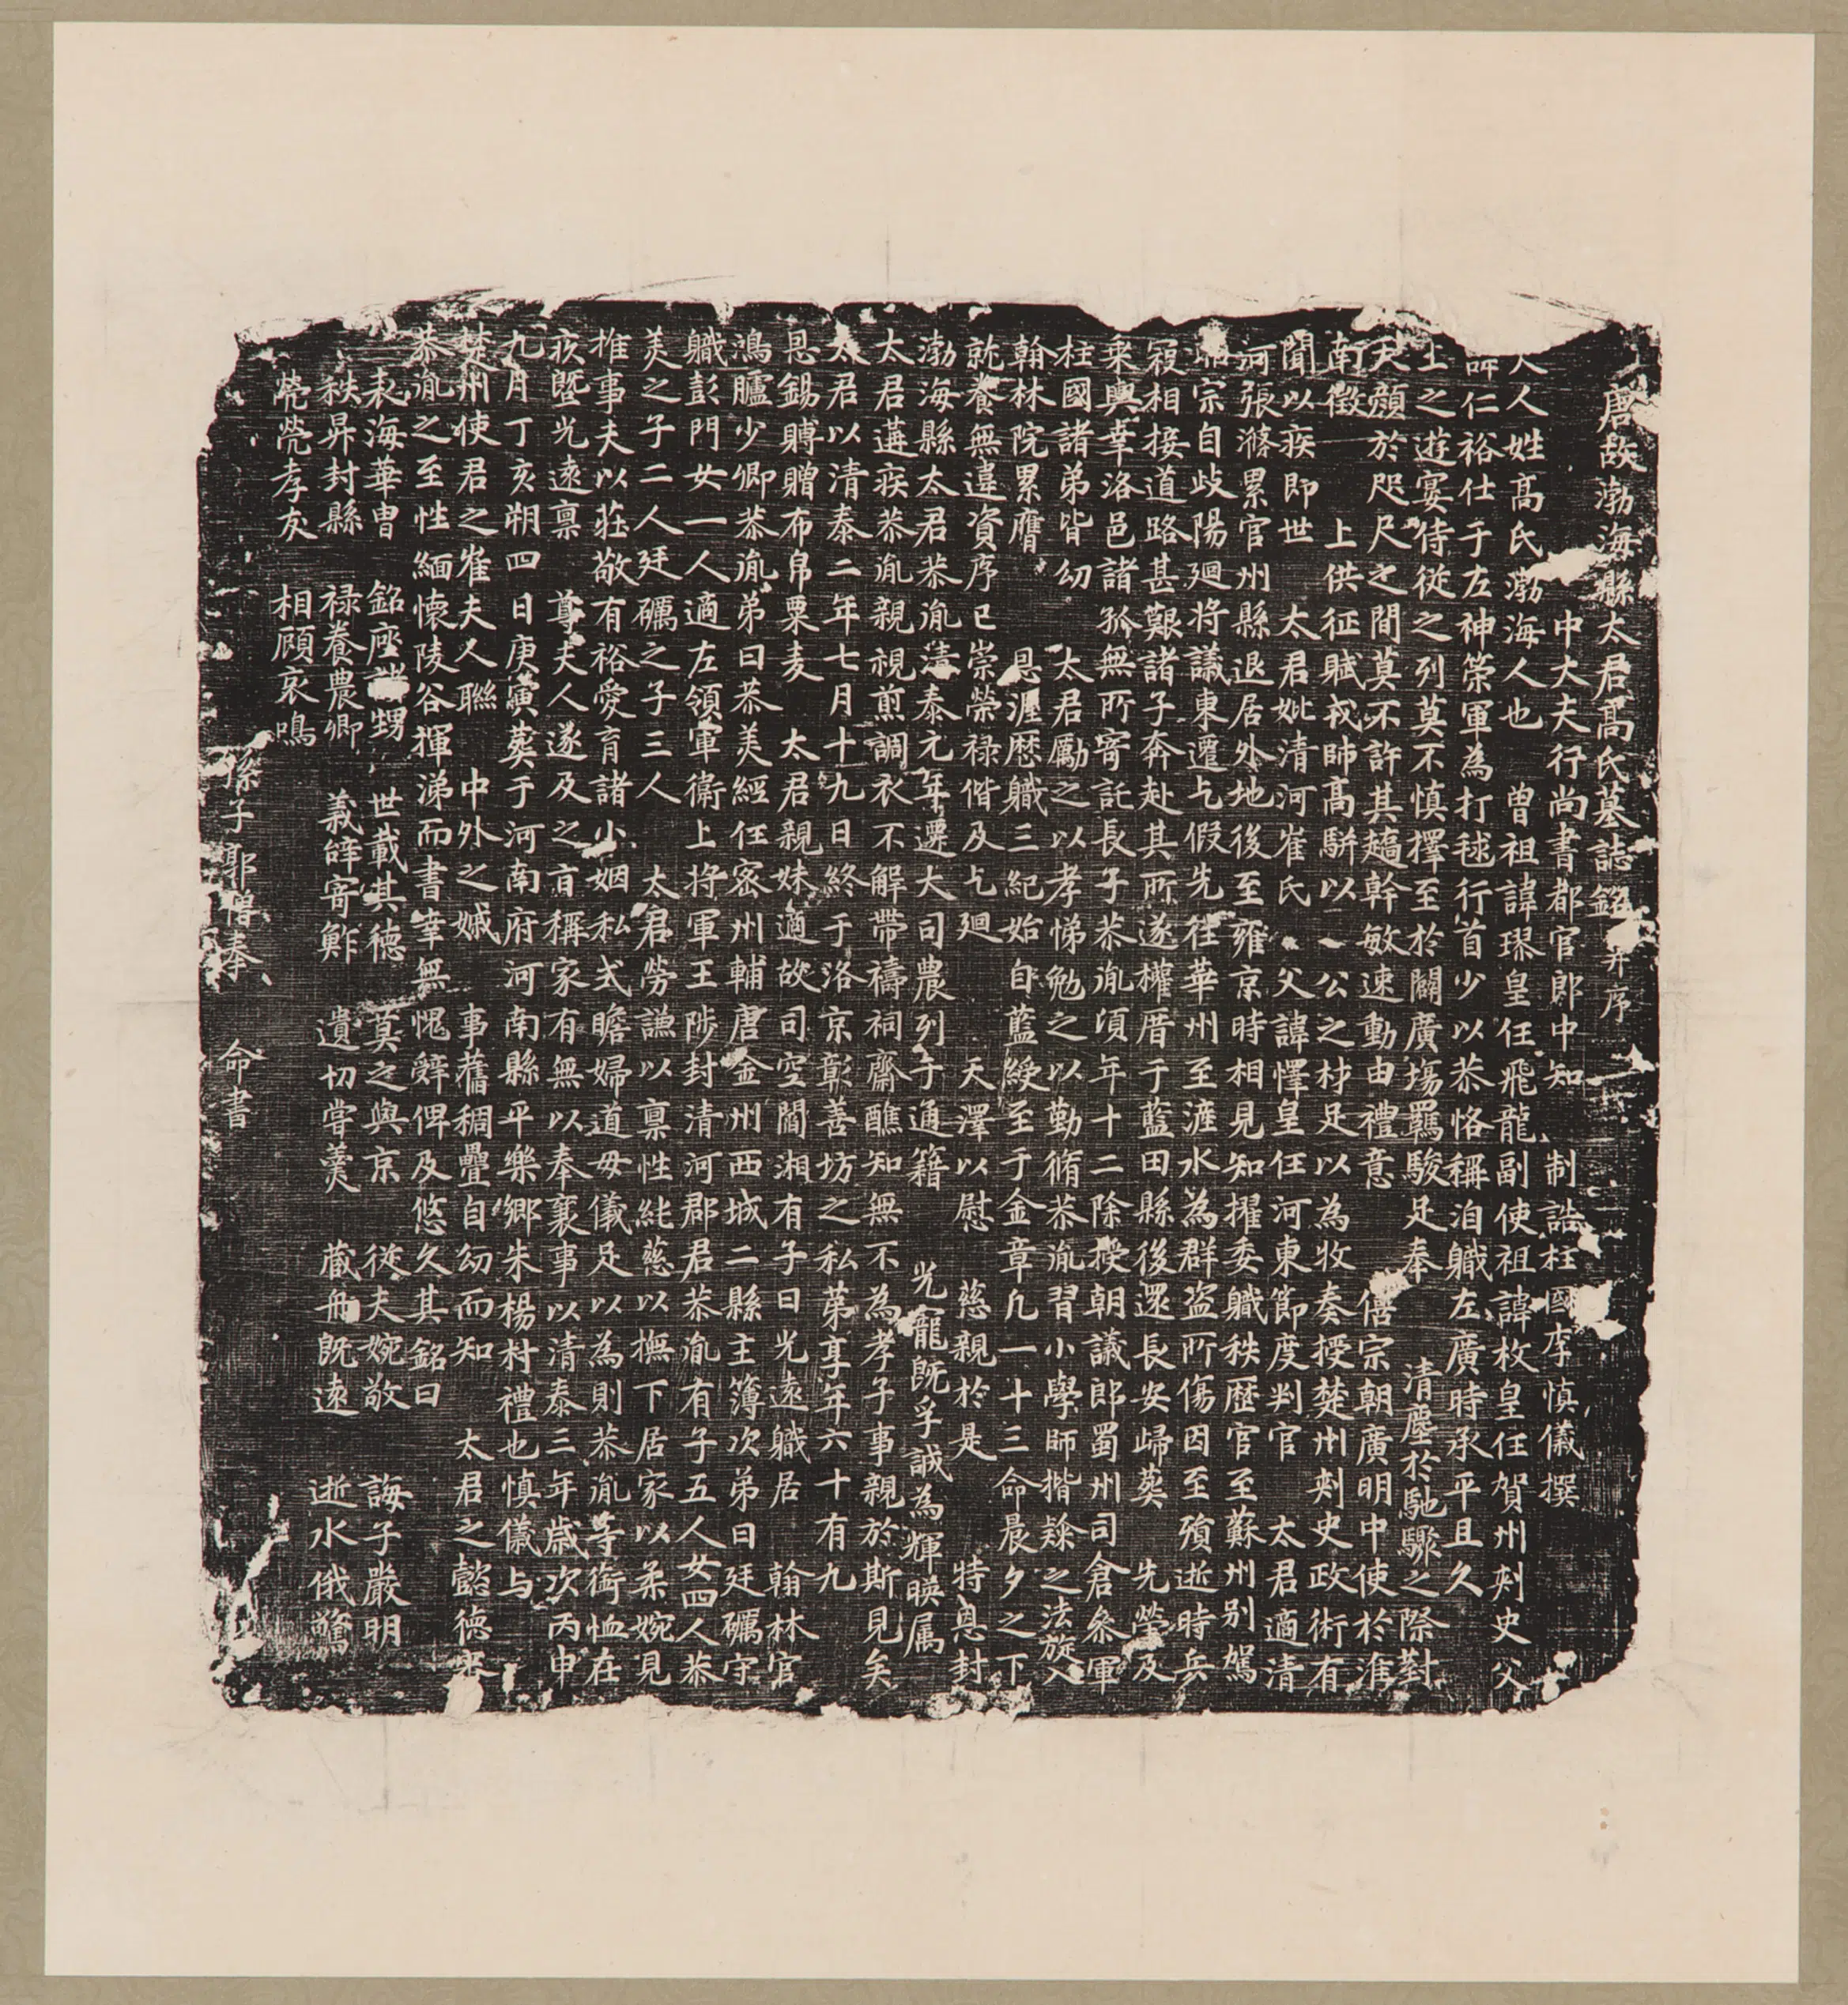 唐故渤海縣太君高氏墓誌銘并序
中大夫行尚書都官郎中知制誥柱國李慎儀撰
人姓高氏渤海人也曾祖諱璆皇任飛龍副使祖諱枚皇任賀州刾史父
諱仁裕仕于左神策軍為打毬行首少以恭恪稱洎職左廣時承平且久
上之遊宴侍從之列莫不慎擇至於闢廣塲羈駿足奉清塵於馳驟之際對
天顏於咫尺之間莫不許其趫幹敏速動由禮意僖宗朝廣明中使於淮
南徵上供征賦戎師高駢以公之材足以為牧奏授楚州刾史政術有
聞以疾即世太君妣清河崔氏父諱懌皇任河東節度判官太君適清
河張滌累官州縣退居外地後至雍京時相見知擢委職秩歷官至蘇州别駕
昭宗自歧陽廻將議東遷乞假先往華州至滻水為群盜所傷因至殞逝時兵
寇相接道路甚艱諸子奔赴其所遂權厝于藍田縣後還長安歸葬先塋及
乘輿幸洛邑諸孤無所寄託長子恭胤頃年十二除授朝議郎蜀州司倉叅軍
柱國諸弟皆幼太君勵之以孝悌勉之以勤脩恭胤習小學師楷隸之法旋入
翰林院累膺恩渥歷職三紀始自藍綬至于金章凡一十三命晨夕之下
就養無違資序已崇榮禄偕及乞廻天澤以慰慈親於是特恩封
渤海縣太君恭胤清泰元年遷大司農列于通籍光寵既孚誠為輝暎属
太君遘疾恭胤親視煎調衣不解帶禱祠齋醮知無不為孝子事親於斯見矣
太君以清泰二年七月十九日終于洛京彰善坊之私苐享年六十有九
恩錫賻贈布帛粟麦太君親妹適故司空閻湘有子曰光遠職居翰林官
鴻臚少卿恭胤弟曰恭美經任密州輔唐金州西城二縣主簿次弟曰廷礪守
職彭門女一人適左領軍衛上將軍王陟封清河郡君恭胤有子五人女四人恭
美之子二人廷礪之子三人太君勞謙以稟性純慈以撫下居家以柔婉見
推事夫以莊敬有裕愛育諸小姻私式瞻婦道母儀足以為則恭胤等銜恤在
疚曁光遠稟尊夫人遂及之言稱家有無以奉襄事以清泰三年歲次丙申
九月丁亥朔四日庚寅葬于河南府河南縣平樂鄉朱楊村禮也慎儀与
楚州使君之崔夫人聯中外之娍事舊稠疊自幼而知太君之懿德來
恭胤之至性緬懷陵谷揮涕而書幸無愧辭俾及悠久其銘曰
表海華胄銘座甥世載其德莫之與京從夫婉敬誨子嚴明
秩昇封縣禄養農卿義皣寄鮓遺切嘗羹蔵舟既遠逝水俄驚
煢煢孝友相顧哀鳴
孫子郭僧奉命書